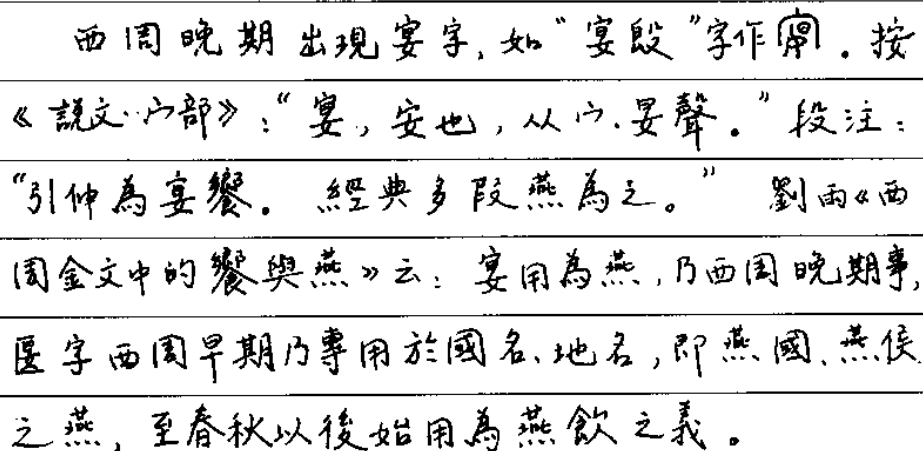 西周晚期出現宴字,如“宴𣪘”字作。按
《說文·宀部》:“宴,安也,从宀.妟聲。”段注:
“引伸為宴饗。經典多叚燕為之。”劉雨《西
周金文中的饗與燕》云:宴用為燕,乃西周晚期事,
匽字西周早期乃專用於國名、地名,即燕國、燕侯
之燕,至春秋以後始用為燕飲之義。